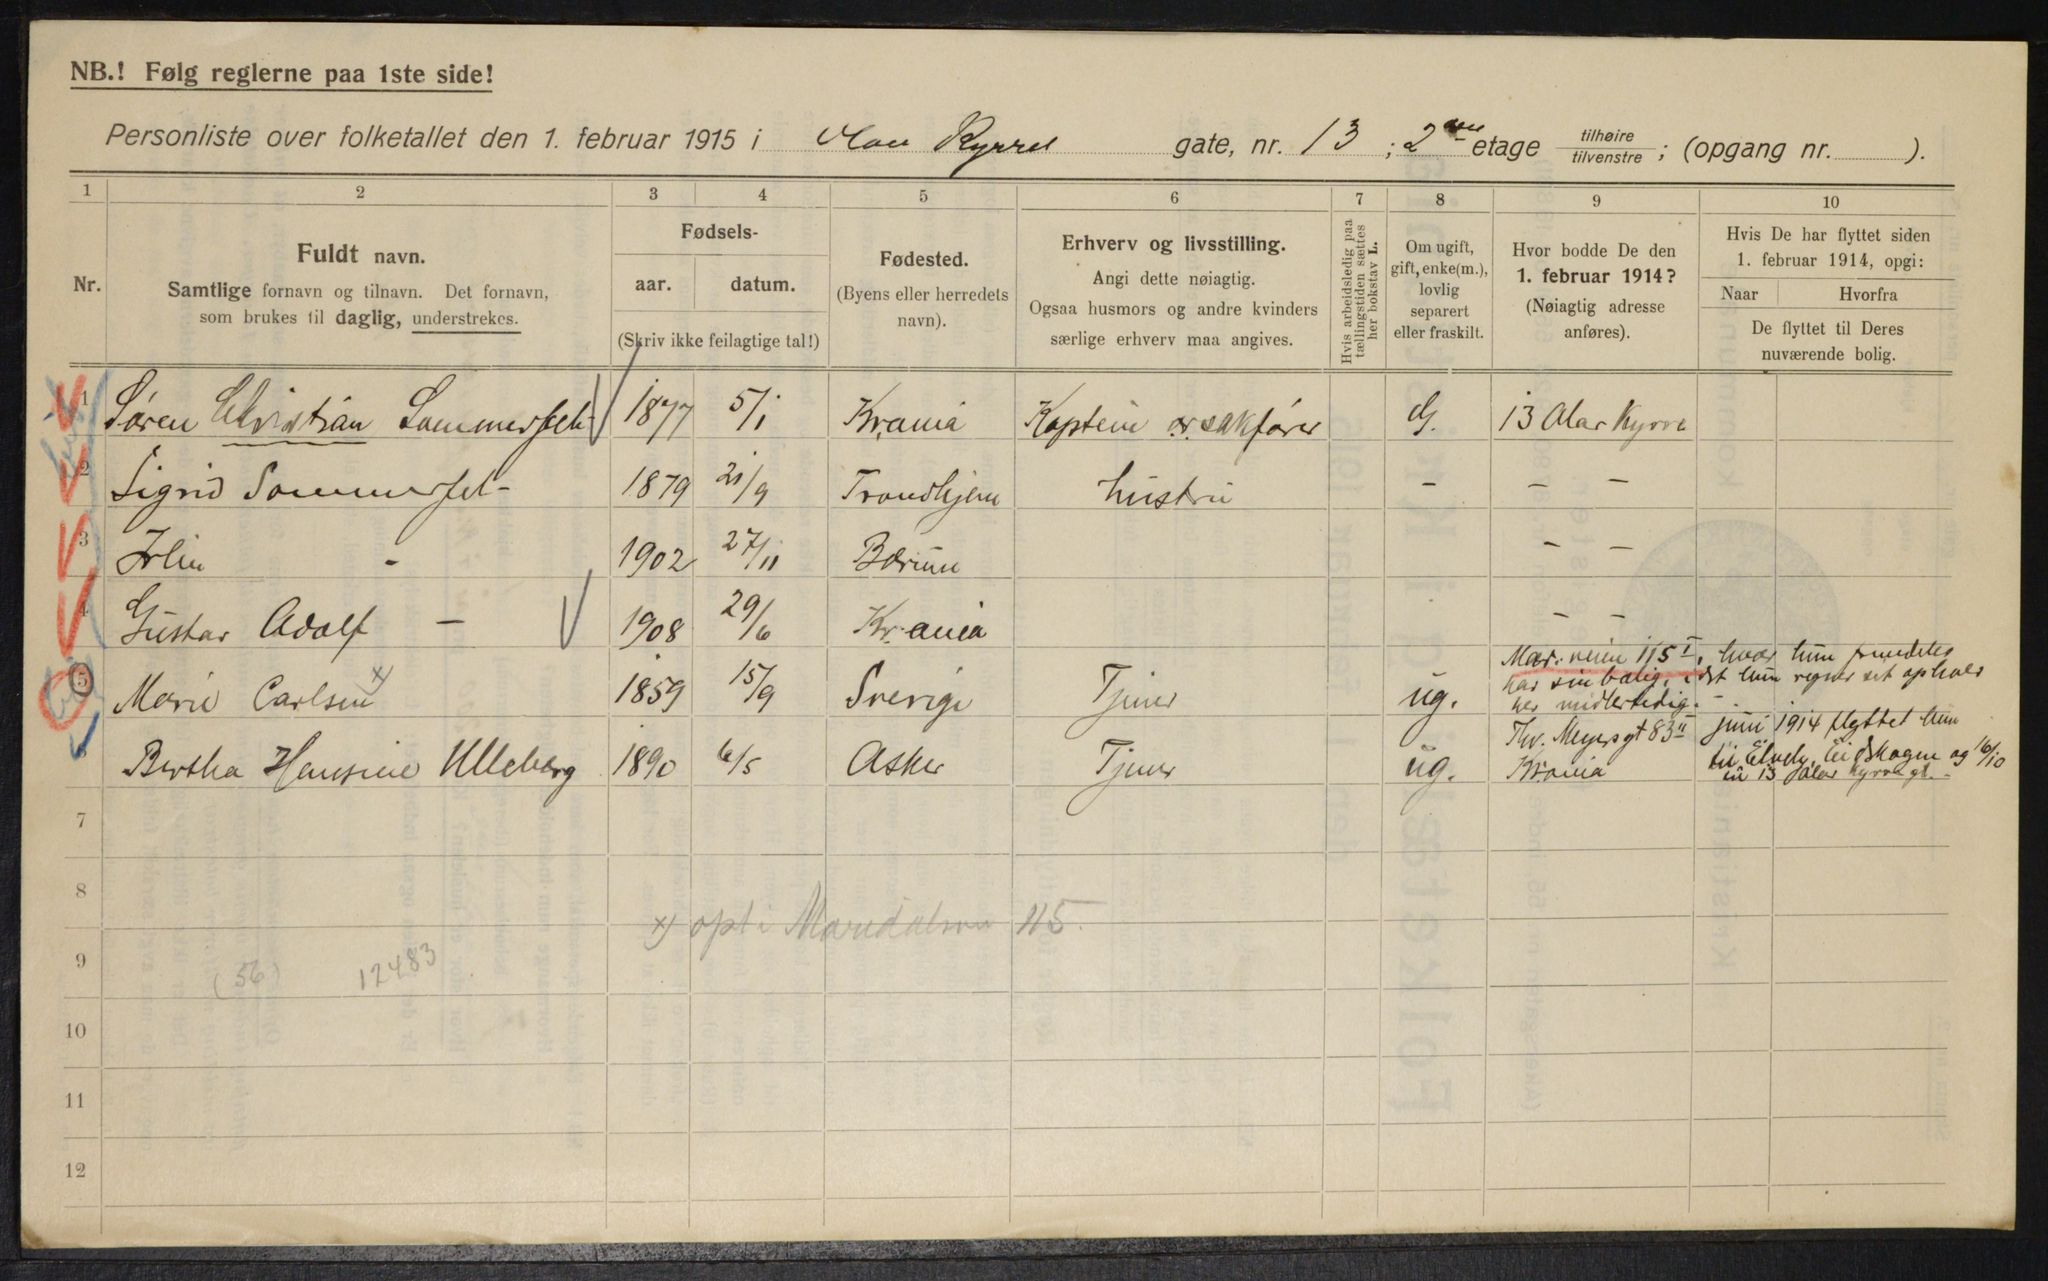 NB.! Følg reglerne paa 1ste side!
Personliste over folketallet den 1. februar 1915 i Olav Kyrres gate, nr. 13; 2den etage tilhøire/tilvenstre; (opgang nr. ).
1 2 3 4 5 6 7 8 9 10
Nr.
Fuldt navn.
Samtlige fornavn og tilnavn. Det fornavn,
som brukes til daglig, understrekes.
Fødsels-
aar. datum.
(Skriv ikke feilagtige tal!)
Fødested.
(Byens eller herredets
navn).
Erhverv og livsstilling.
Angi dette nøiagtig.
Ogsaa husmors og andre kvinders
særlige erhverv maa angives.
Hvis arbeidsledig paa
tællingstiden sættes
her bokstav L.
Om ugift,
gift, enke(m.),
lovlig
separert
eller fraskilt.
Hvor bodde De den
1. februar 1914?
(Nøiagtig adresse
anføres).
Hvis De har flyttet siden
1. februar 1914, opgi:
Naar Hvorfra
De flyttet til Deres
nuværende bolig.
1 Søren Christian Sommerfelt 1877 5/1 Krania Kaptein or. sakfører G. 13 Olav Kyrre
2 Sigrid Sommerfelt 1879 21/9 Trondhjem hustru - - -
3 - 1902 27/11 Bærum - -
4 Gustav Adolf - 1908 29/6 Kr.ania - -
5 Marie Carlsen x 1859 15/9 Sverige Tjener ug. Mar. veien 115 I, hvor hun fremdeles
har sin bolig, idet hun regner sit ophold
her midlertidig. -
6 Bertha Hansine Ulleberg 1890 6/5 Asker Tjener ug. Thv. Meyersgt 83 II juni 1914 flyttet hun
Krania til Eidskogen og 16/10
til 13 Olav Kyrres gt. -
7
8
x) opt. i Maridalsvn 115.
9
(56) 12483
10
11
12